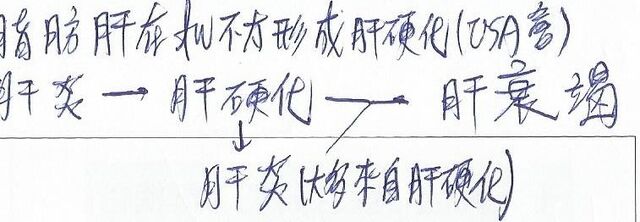 脂肪肝在 不 形成肝硬化(USA )
肝炎 → 肝硬化 → 肝衰竭
↓
肝炎(大多来自肝硬化)